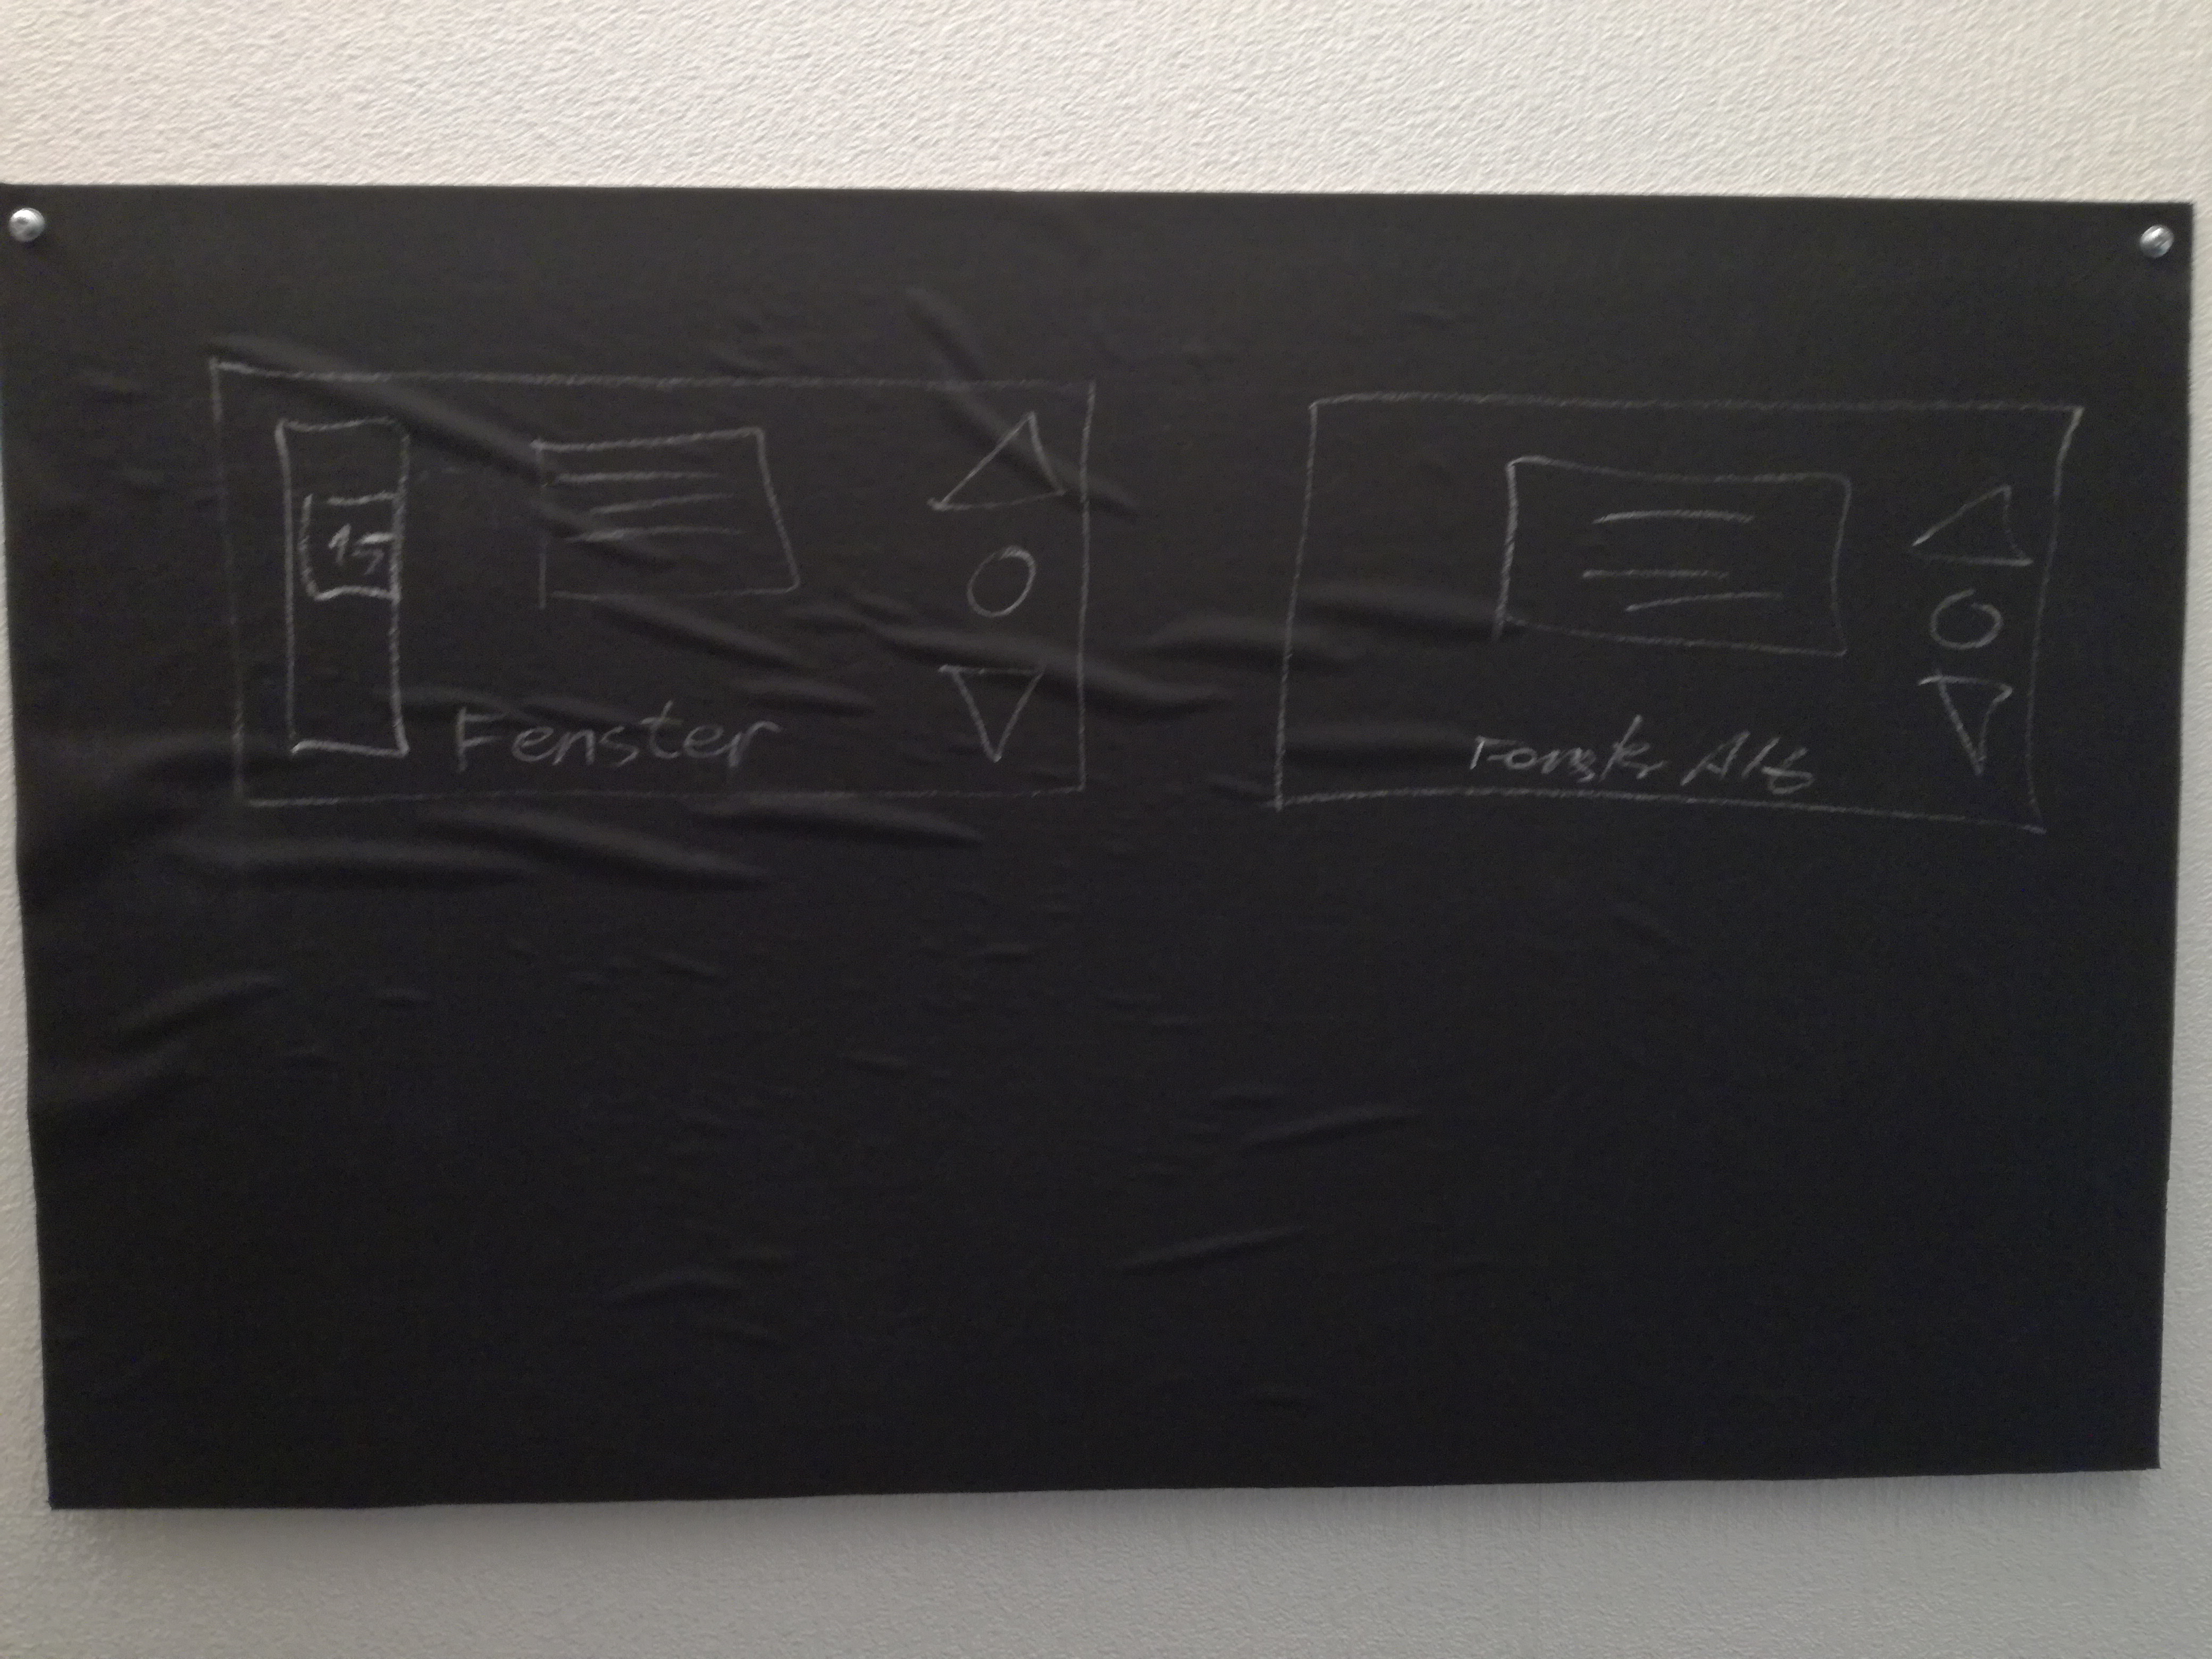 15
Fenster
Fenster